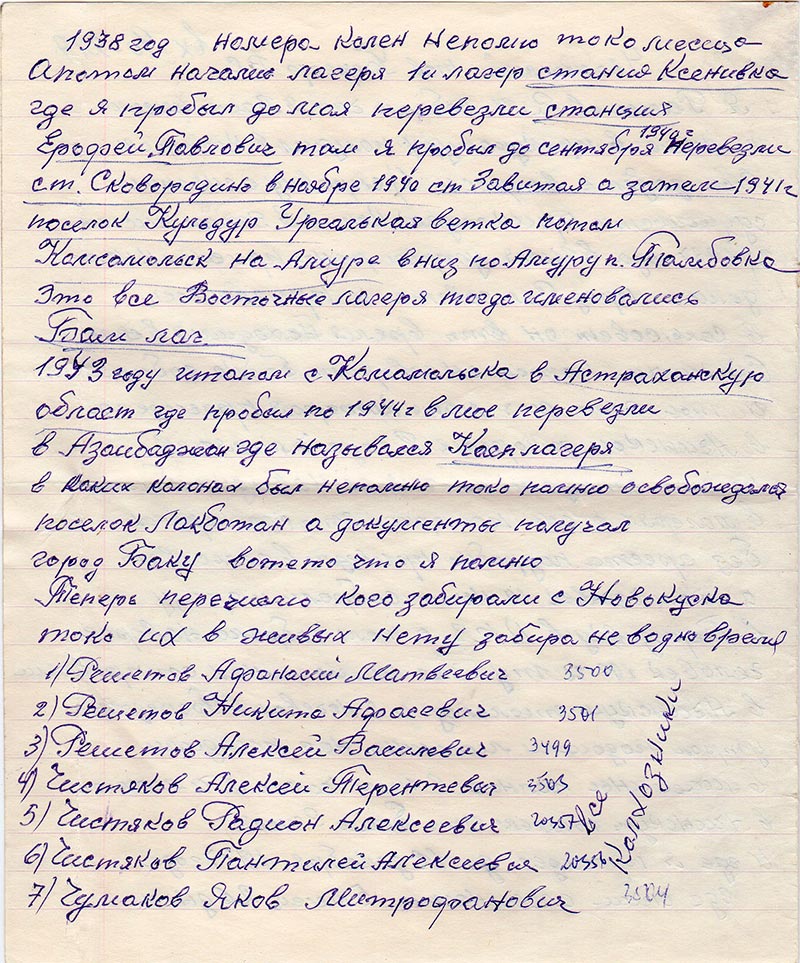 1938 год номера колен непомю токо месеца
А потом начались лагеря 1и лагер стания Ксенивка
где я пробыл до мая перевезли станция
Ерофей Павлович там я пробыл до сентября 1940г перевезли
ст. Сковородино в ноябре 1940 ст Завитая а затем 1941г
поселок Кульдур Ургалькая ветка потом
Комсомольск на Амуре вниз по Амуру п. Тамбовка
Это все Восточные лагеря тогда именовались
Бам лаг
1943 году итапом с Комамольска в Астраханскую
област где пробыл по 1944г в мое перевезли
в Азаибаджан где назывался Касплагеря
в каких колонах был непомню токо помню освобождался
поселок Локботан а документы получал
город Баку вотето что я помню
Теперь перечислю кого забирали с Новокуска
токо их в живых нету забира не водно время
1) Решетов Афанасий Матвеевич 3500
2) Решетов Никита Афасевич 3501
3) Решетов Алексей Василевич 3499
4) Чистяков Алексей Терентевич 3503
5) Чистяков Радион Алексеевич 20357
6) Чистяков Пантилей Алексеевич 20356
7) Чумаков Яков Митрофанович 3504
все колхозники